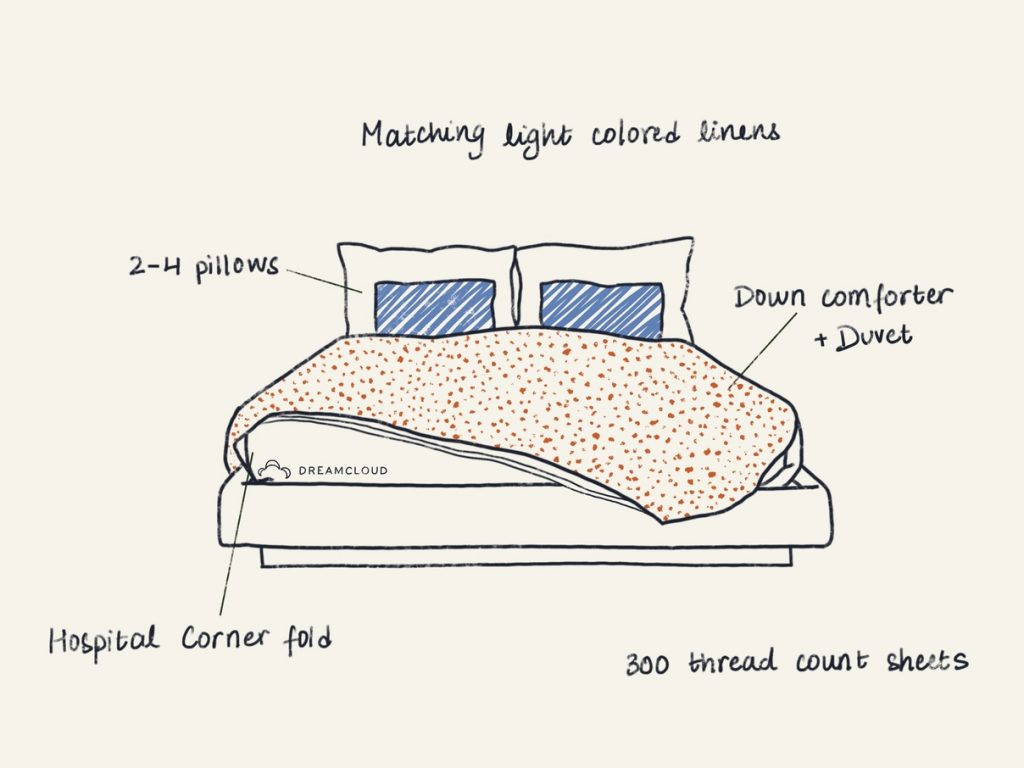 Matching light colored linens
2-4 pillows
Down comforter
+ Duvet
DREAMCLOUD
Hospital Corner fold
300 thread count sheets